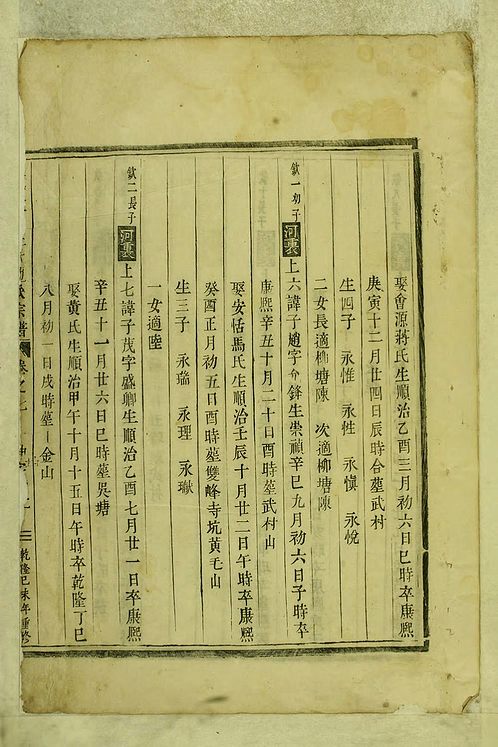 娶會源蔣氏生順治乙酉三月初六日巳時卒康熙
庚寅十二月廿四日辰時合墓武村
生四子 永惟 永牲 永慎 永悅
二女長適柳塘陳 次適柳塘陳
欽一初子河裏上六諱子趙字介鋒生崇禎辛巳九月初六日子時卒
康熙辛丑十月二十日酉時墓武村山
娶安恬馬氏生順治壬辰十月廿二日午時卒康熙
癸酉正月初五日酉時墓雙峰寺坑黃毛山
生三子 永瑞 永理 永璥
一女適陸
欽二長子河裏上七諱子茂字盛卿生順治乙酉七月廿一日卒康熙
辛丑十一月廿六日巳時墓吳塘
娶黃氏生順治甲午十月十五日午時卒乾隆丁巳
八月初一日戌時墓一金山
宗譜 卷之七 乾隆己未年重修